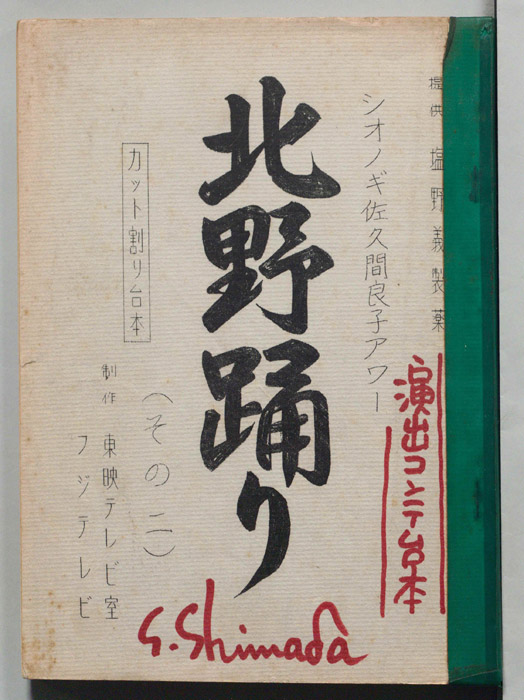 提供 塩野義製薬
シオノギ佐久間良子アワー
演出コンテ台本
北野踊り
(その二)
カット割り台本
制作 東映テレビ室
フジテレビ
S.Shimada